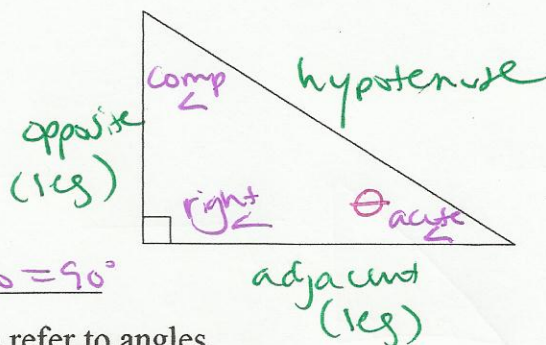 comp
<
hypotenuse
opposite
(leg)
right
<
θ acute
<
= 90°
adjacent
(leg)
refer to angles